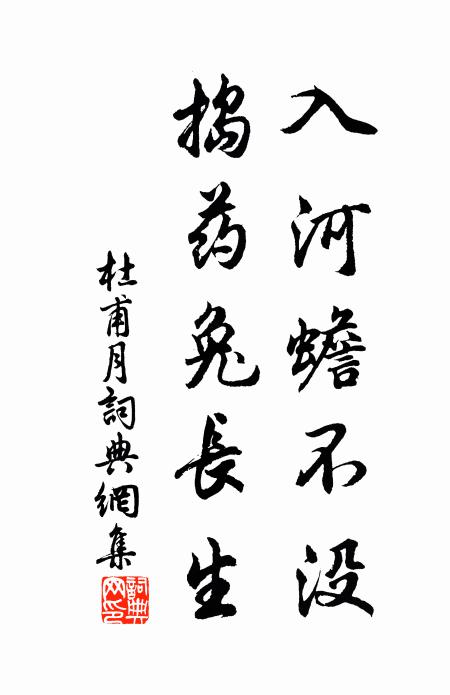 入河蟾不没
搗药兔長生
杜甫月詞典網集
詞典网印